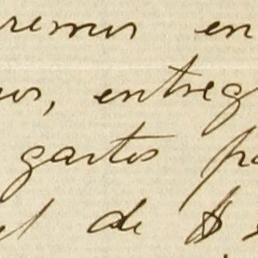 remos en
os, entreg
gastos pa
el de $